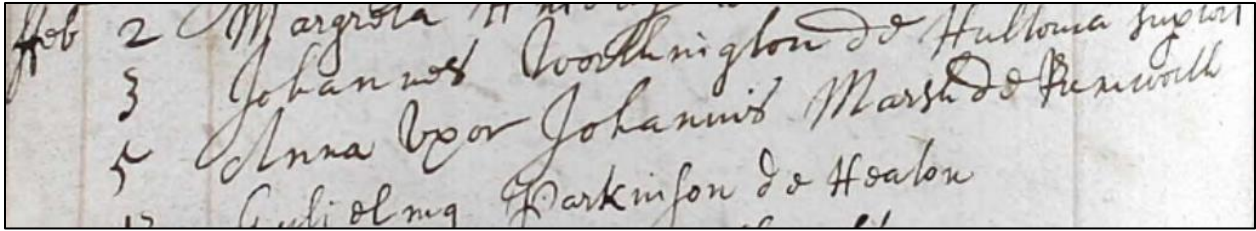 ffeb 2 Margreta
3 Johannes Worthington de Hultonia superi
5 Anna Vxor Johannis Marsh de Rumworth
Gulielmq Parkinson de Heaton